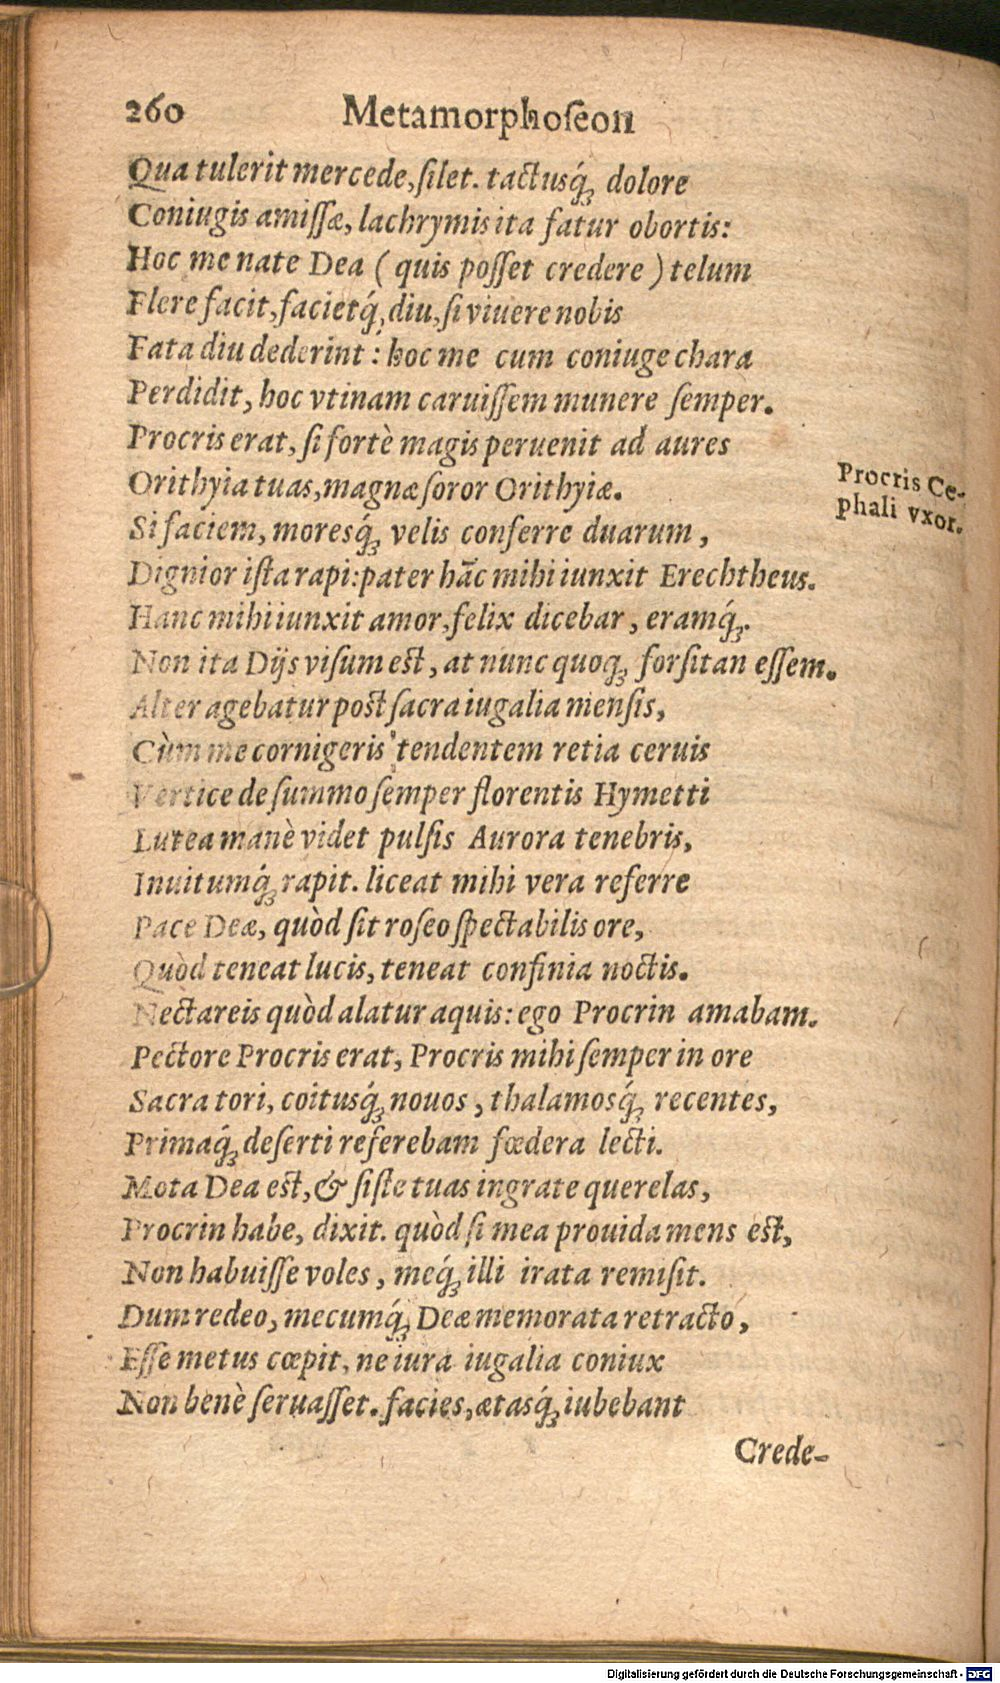 260 Metamorphoſeon
Qua tulerit mercede, ſilet. tactusq́; dolore
Coniugis amiſſæ, lachrymis ita fatur obortis:
Hoc me nate Dea ( quis poſſet credere ) telum
Flere facit, facietq́; diu, ſi viuere nobis
Fata diu dederint : hoc me cum coniuge chara
Perdidit, hoc vtinam caruiſſem munere ſemper.
Procris erat, ſi fortè magis peruenit ad aures
Orithyia tuas, magnæ ſoror Orithyiæ.
Procris Ce-
phali vxor.
Si faciem, moresq́; velis conferre duarum,
Dignior iſta rapi: pater hãc mihi iunxit Erechtheus.
Hanc mihi iunxit amor, felix dicebar, eramq́;.
Non ita Dijs viſum eſt, at nunc quoq; forſitan eſſem.
Alter agebatur poſt ſacra iugalia menſis,
Cùm me cornigeris tendentem retia ceruis
Vertice de ſummo ſemper florentis Hymetti
Lutea manè videt pulſis Aurora tenebris,
Inuitumq́; rapit. liceat mihi vera referre
Pace Deæ, quòd ſit roſeo ſpectabilis ore,
Quòd teneat lucis, teneat confinia noctis.
Nectareis quòd alatur aquis: ego Procrin amabam.
Pectore Procris erat, Procris mihi ſemper in ore
Sacra tori, coitusq́; nouos, thalamosq́; recentes,
Primaq́; deſerti referebam fœdera lecti.
Mota Dea eſt, & ſiſte tuas ingrate querelas,
Procrin habe, dixit. quòd ſi mea prouida mens eſt,
Non habuiſſe voles, meq́; illi irata remiſit.
Dum redeo, mecumq́; Deæ memorata retracto,
Eſſe metus cœpit, ne iura iugalia coniux
Non benè ſeruaſſet. facies, ætasq́; iubebant
Crede-
Digitalisierung gefördert durch die Deutsche Forschungsgemeinschaft - DFG